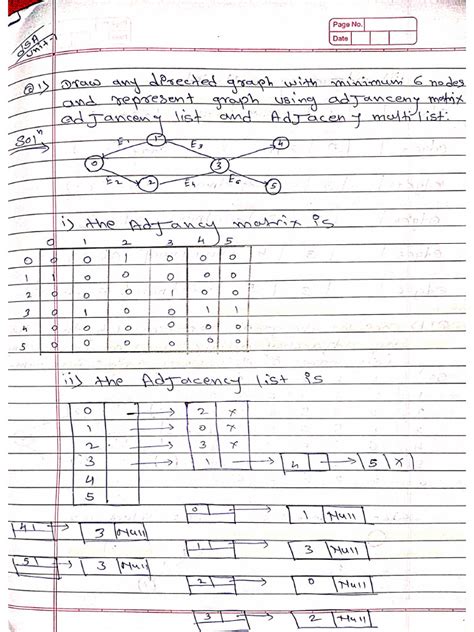 Page No.
Date
DSA
Unit-
Q1) Draw any directed graph with minimum 6 nodes
and represent graph using adjanceny matrix
adjanceny list and Adjaceny multilist.
Solⁿ
E1 1 E3 4
0 3
E2 2 E4 E6 5
i) the Adjancy matrix is
0 1 2 3 4 5
0 0 0 1 0 0 0
1 1 0 0 0 0 0
2 0 0 0 1 0 0
3 0 1 0 0 1 1
4 0 0 0 0 0 0
5 0 0 0 0 0 0
ii) the Adjacency list is
0 → 2 x
1 → 0 x
2 → 3 x
3 → 1 → 4 → 5 x
4
5
0 → 1 Null
4 → 3 Null
1 → 3 Null
5 → 3 Null
2 → 0 Null
3 → 2 Null